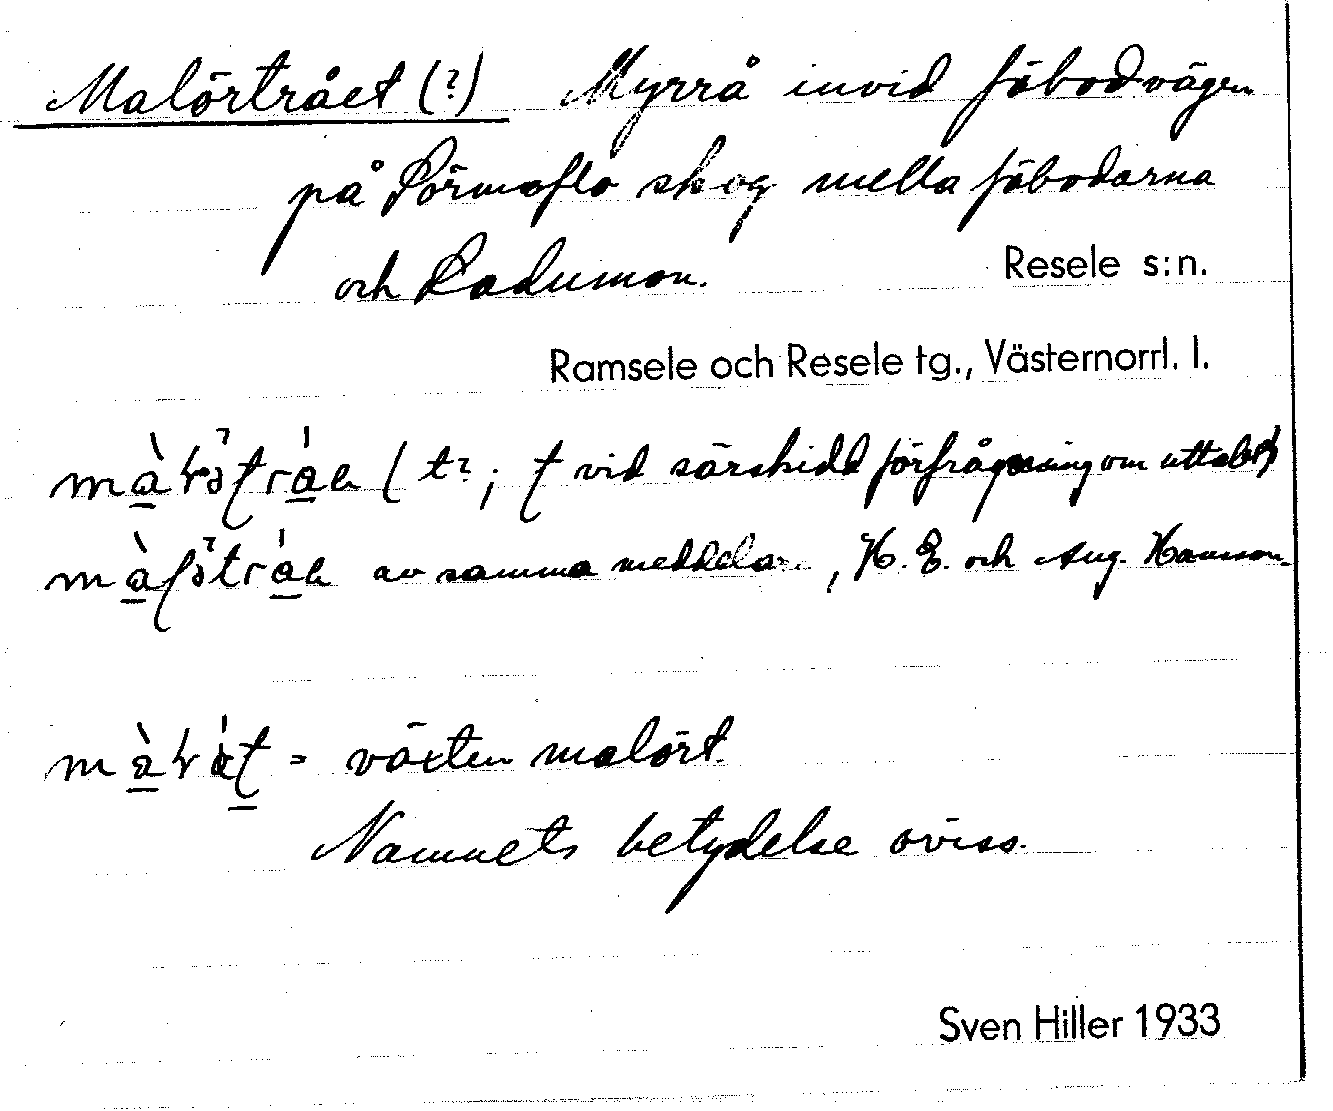 Malörtrået (?) Myrrå invid fäbodvägen
på Sörmoflo skog mella fäbodarna
och Sadumon.
Resele s:n.
Ramsele och Resele tg., Västernorrl. l.
(t?; vid särskild förfrågning om uttalet)
av samma meddelare, H. E. och Aug. Hansson.
= växten malört.
Namnets betydelse oviss.
Sven Hiller 1933